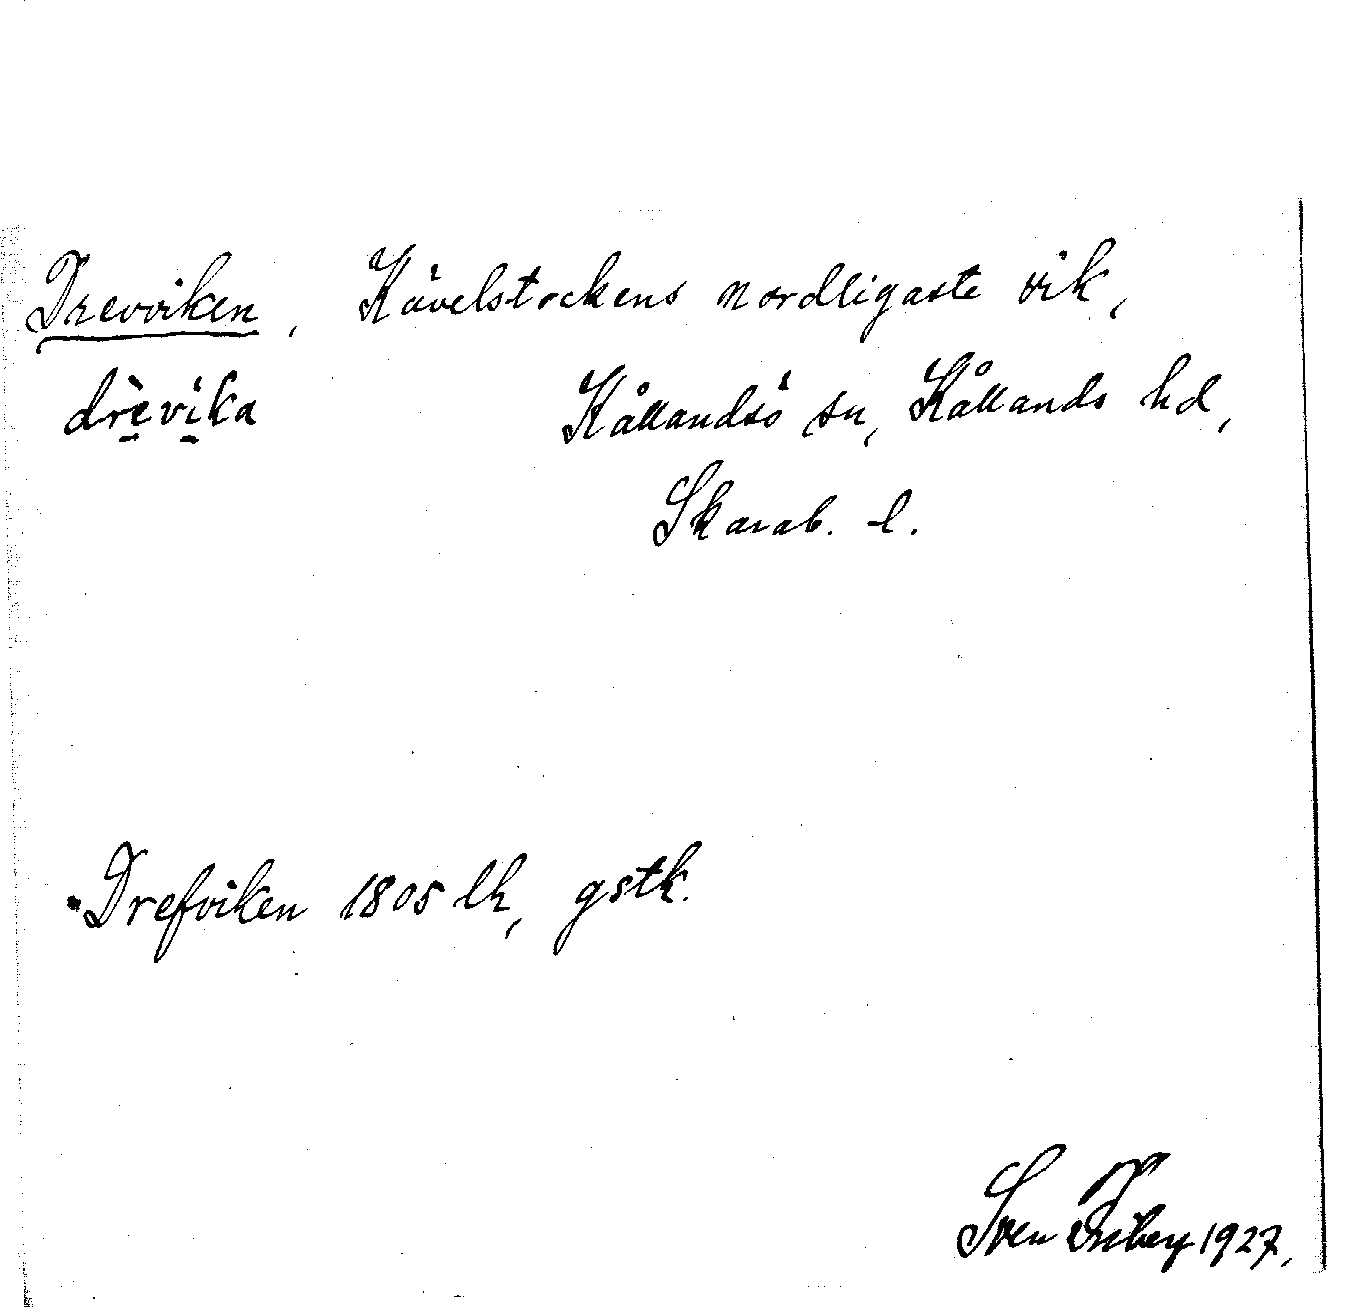 Drevviken, Kävelstockens nordligaste vik,
drèvíka Kållandsö sn, Kållands hd,
Skarab. l.
Drefviken 1805 lh, gstk.
Sven Friberg 1927.